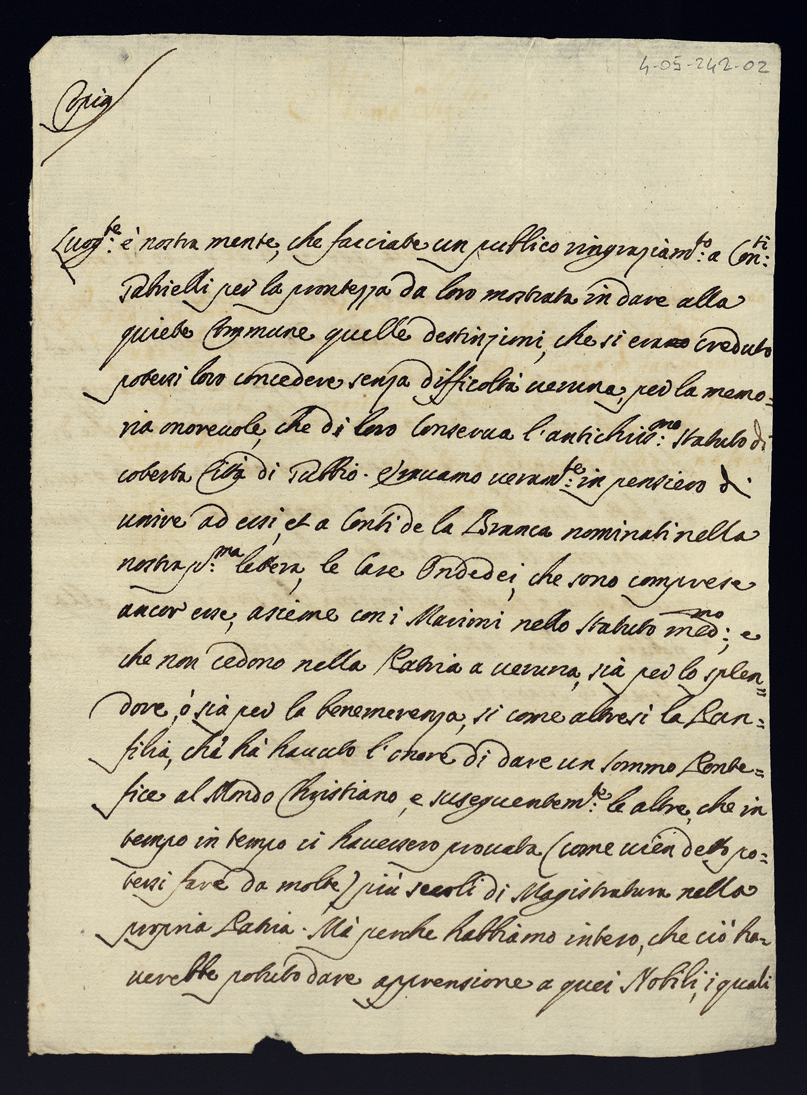 4-05-242-02
Copia
Luogte: è nostra mente, che facciate un publico ringraziamto: a Conti:
Gabrielli per la prontezza da loro mostrata in dare alla
quiete Commune quelle destinzioni, che si era creduto
potersi loro concedere senza difficoltà veruna, per la memo=
ria onorevole, che di loro Conserva l'antichissmo: Statuto di
coterta Città di Gubbio. Eravamo veramte: in pensiero di
unire ad essi, et a Conti de la Branca nominati nella
nostra pma: lettera, le Case Ondedei, che sono comprese
ancor esse, assieme con i Marioni nello Statuto medmo:; e
che non cedono nella Patria a veruna, sià per lo splen=
dore, ò sià per la benemerenza, si come altresì la Pan=
filia, chà hà havuto l'onore di dare un sommo Ponte=
fice al Mondo Christiano, e suseguentemte: le altre, che in
tempo in tempo ci havessero provata (come vien detto po=
tersi fare da molte) più secoli di Magistratura nella
propria Patria. Mà perche habbiamo inteso, che ciò ha=
verebbe potuto dare apprensione a quei Nobili, i quali